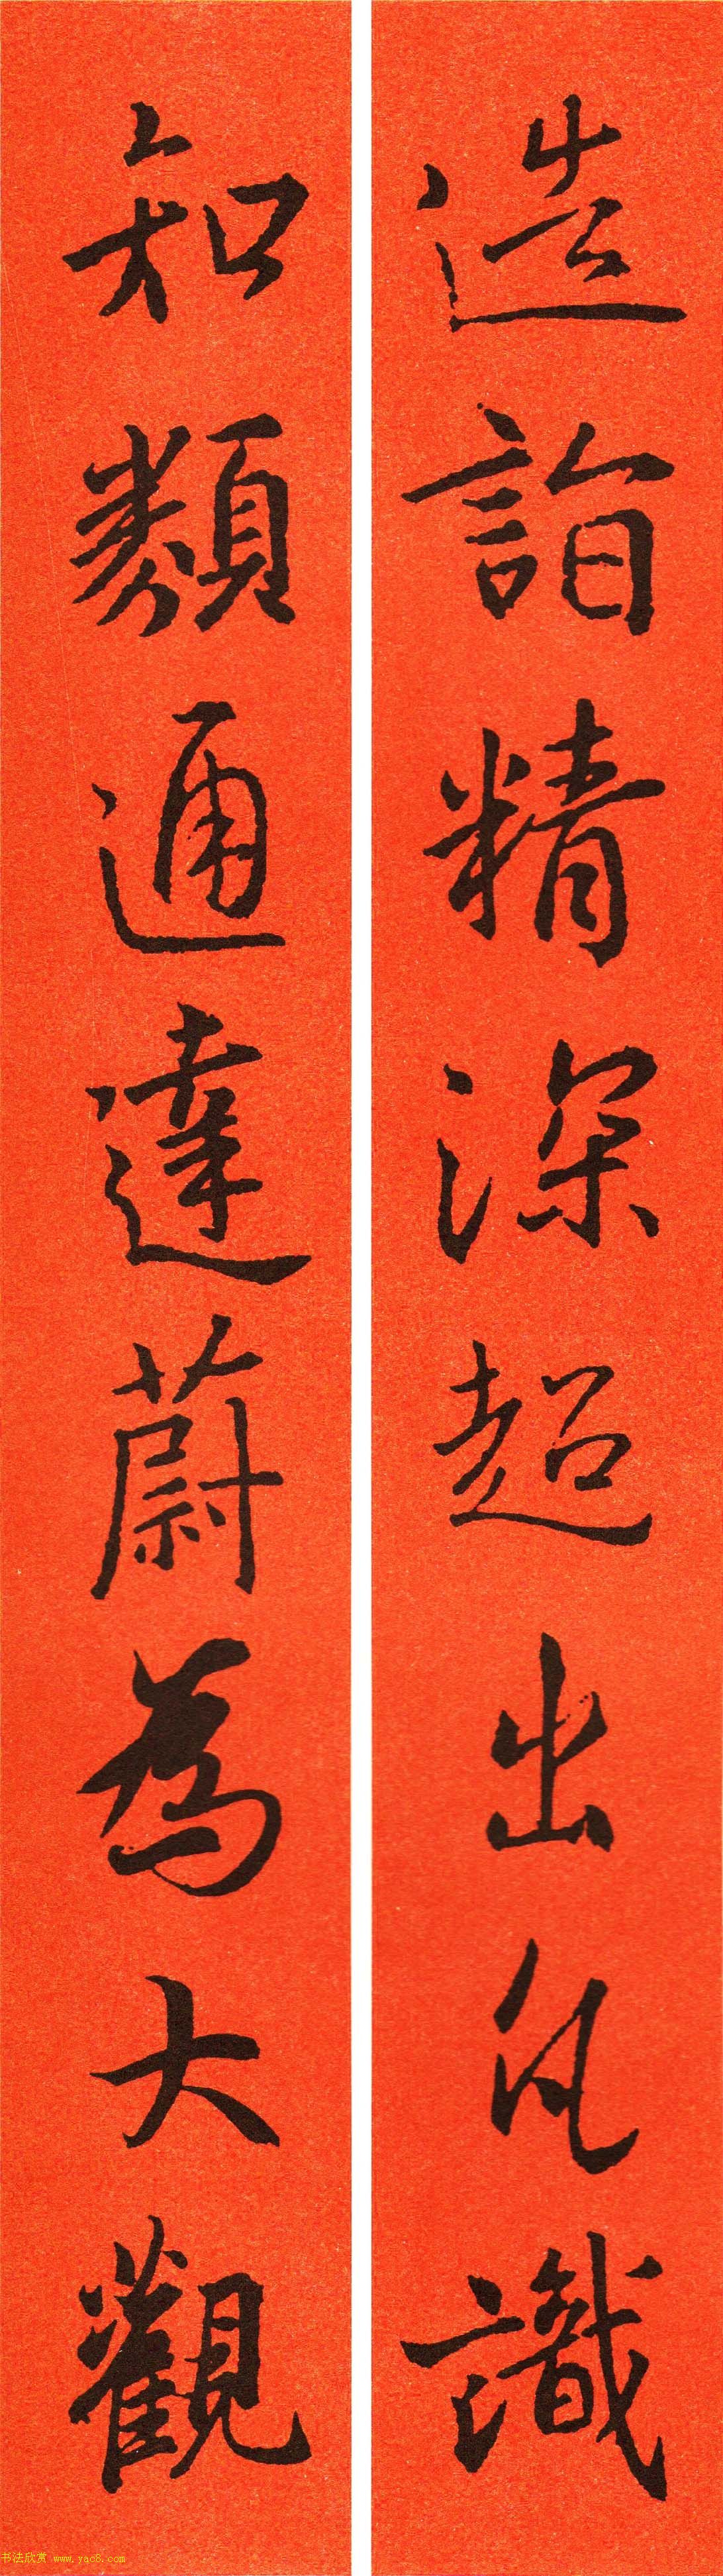 造詣精深超出凡識
知類通達蔚為大觀
书法欣赏 www.yac8.com